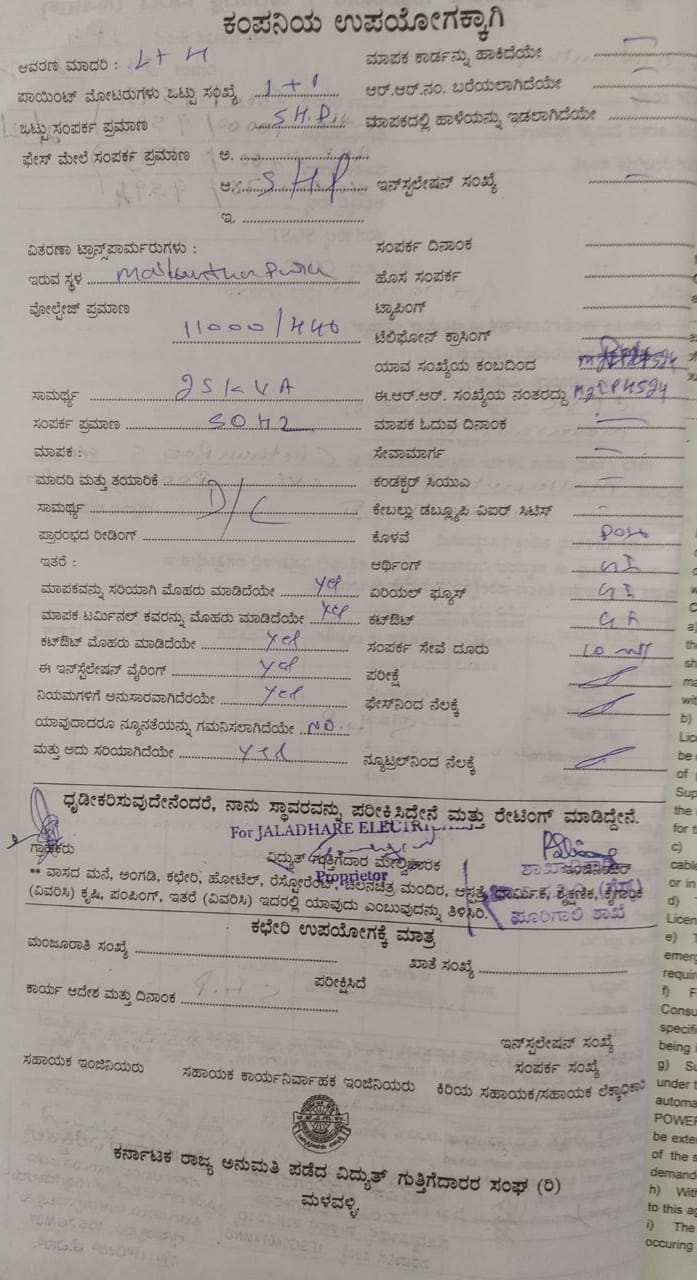 ಕಂಪನಿಯ ಉಪಯೋಗಕ್ಕಾಗಿ
ಆವರಣ ಮಾದರಿ : L+H ಮಾಪಕ ಕಾರ್ಡನ್ನು ಹಾಕಿದೆಯೇ
ಪಾಯಿಂಟ್ ಮೋಟರುಗಳು ಒಟ್ಟು ಸಂಖ್ಯೆ 1+1 ಆರ್.ಆರ್.ನಂ. ಬರೆಯಲಾಗಿದೆಯೇ
ಒಟ್ಟು ಸಂಪರ್ಕ ಪ್ರಮಾಣ 5H.P. ಮಾಪಕದಲ್ಲಿ ಹಾಳೆಯನ್ನು ಇಡಲಾಗಿದೆಯೇ
ಫೇಸ್ ಮೇಲೆ ಸಂಪರ್ಕ ಪ್ರಮಾಣ ಅ.
ಆ. 5HP ಇನ್‌ಸ್ಟಲೇಷನ್ ಸಂಖ್ಯೆ
ಇ.
ವಿತರಣಾ ಟ್ರಾನ್ಸ್‌ಫಾರ್ಮರುಗಳು : ಸಂಪರ್ಕ ದಿನಾಂಕ
ಇರುವ ಸ್ಥಳ ಹೊಸ ಸಂಪರ್ಕ
ವೋಲ್ಟೇಜ್ ಪ್ರಮಾಣ ಟ್ಯಾಪಿಂಗ್
11000/440 ಟೆಲಿಫೋನ್ ಕ್ರಾಸಿಂಗ್
ಯಾವ ಸಂಖ್ಯೆಯ ಕಂಬದಿಂದ
ಸಾಮರ್ಥ್ಯ 25KVA ಈ.ಆರ್.ಆರ್. ಸಂಖ್ಯೆಯ ನಂತರದ್ದು
ಸಂಪರ್ಕ ಪ್ರಮಾಣ 50HZ ಮಾಪಕ ಓದುವ ದಿನಾಂಕ
ಮಾಪಕ : ಸೇವಾಮಾರ್ಗ
ಮಾದರಿ ಮತ್ತು ತಯಾರಿಕೆ ಕಂಡಕ್ಟರ್ ಸಿಯುಎ
ಸಾಮರ್ಥ್ಯ D/C ಕೇಬಲ್ಲು ಡಬ್ಲ್ಯೂಪಿ ವಿಐರ್ ಸಿಟಿಸ್
ಪ್ರಾರಂಭದ ರೀಡಿಂಗ್ ಕೊಳವೆ
ಇತರೆ : ಅರ್ಥಿಂಗ್ GI
ಮಾಪಕವನ್ನು ಸರಿಯಾಗಿ ಮೊಹರು ಮಾಡಿದೆಯೇ Yes ಏರಿಯಲ್ ಫ್ಯೂಸ್ GI
ಮಾಪಕ ಟರ್ಮಿನಲ್ ಕವರನ್ನು ಮೊಹರು ಮಾಡಿದೆಯೇ Yes ಕಟ್‌ಔಟ್
ಕಟ್‌ಔಟ್ ಮೊಹರು ಮಾಡಿದೆಯೇ Yes ಸಂಪರ್ಕ ಸೇವೆ ದೂರು 10 mt
ಈ ಇನ್‌ಸ್ಟಲೇಷನ್ ವೈರಿಂಗ್ Yes ಪರೀಕ್ಷೆ
ನಿಯಮಗಳಿಗೆ ಅನುಸಾರವಾಗಿದೆರಯೇ Yes ಫೇಸ್‌ನಿಂದ ನೆಲಕ್ಕೆ
ಯಾವುದಾದರೂ ನ್ಯೂನತೆಯನ್ನು ಗಮನಿಸಲಾಗಿದೆಯೇ NO.
ಮತ್ತು ಅದು ಸರಿಯಾಗಿದೆಯೇ Yes ನ್ಯೂಟ್ರಲ್‌ನಿಂದ ನೆಲಕ್ಕೆ
ಧೃಡೀಕರಿಸುವುದೇನೆಂದರೆ, ನಾನು ಸ್ಥಾವರವನ್ನು ಪರೀಕ್ಷಿಸಿದ್ದೇನೆ ಮತ್ತು ರೇಟಿಂಗ್ ಮಾಡಿದ್ದೇನೆ.
For JALADHARE
ಗ್ರಾಹಕರು ವಿದ್ಯುತ್ ಗುತ್ತಿಗೆದಾರ ಮೇಲ್ವಿಚಾರಕ
Proprietor
** ವಾಸದ ಮನೆ, ಅಂಗಡಿ, ಕಛೇರಿ, ಹೋಟೆಲ್, ರೆಸ್ಟೋರೆಂಟ್, ಚಲನಚಿತ್ರ ಮಂದಿರ, ಆಸ್ಪತ್ರೆ, ಧಾರ್ಮಿಕ, ಶೈಕ್ಷಣಿಕ, ಕೈಗಾರಿಕೆ
(ವಿವರಿಸಿ) ಕೃಷಿ, ಪಂಪಿಂಗ್, ಇತರೆ (ವಿವರಿಸಿ) ಇದರಲ್ಲಿ ಯಾವುದು ಎಂಬುವುದನ್ನು ತಿಳಿಸಿರಿ.
ಪೂರಿಗಾಲಿ ಶಾಖೆ
ಕಛೇರಿ ಉಪಯೋಗಕ್ಕೆ ಮಾತ್ರ
ಮಂಜೂರಾತಿ ಸಂಖ್ಯೆ ಖಾತೆ ಸಂಖ್ಯೆ
ಪರೀಕ್ಷಿಸಿದೆ
ಕಾರ್ಯ ಆದೇಶ ಮತ್ತು ದಿನಾಂಕ
ಇನ್‌ಸ್ಟಲೇಷನ್ ಸಂಖ್ಯೆ
ಸಂಪರ್ಕ ಸಂಖ್ಯೆ
ಸಹಾಯಕ ಇಂಜಿನಿಯರು ಸಹಾಯಕ ಕಾರ್ಯನಿರ್ವಾಹಕ ಇಂಜಿನಿಯರು ಕಿರಿಯ ಸಹಾಯಕ/ಸಹಾಯಕ ಲೆಕ್ಕಾಧಿಕಾರಿ
ಕರ್ನಾಟಕ ರಾಜ್ಯ ಅನುಮತಿ ಪಡೆದ ವಿದ್ಯುತ್ ಗುತ್ತಿಗೆದಾರರ ಸಂಘ (ರಿ)
ಮಳವಳ್ಳಿ.